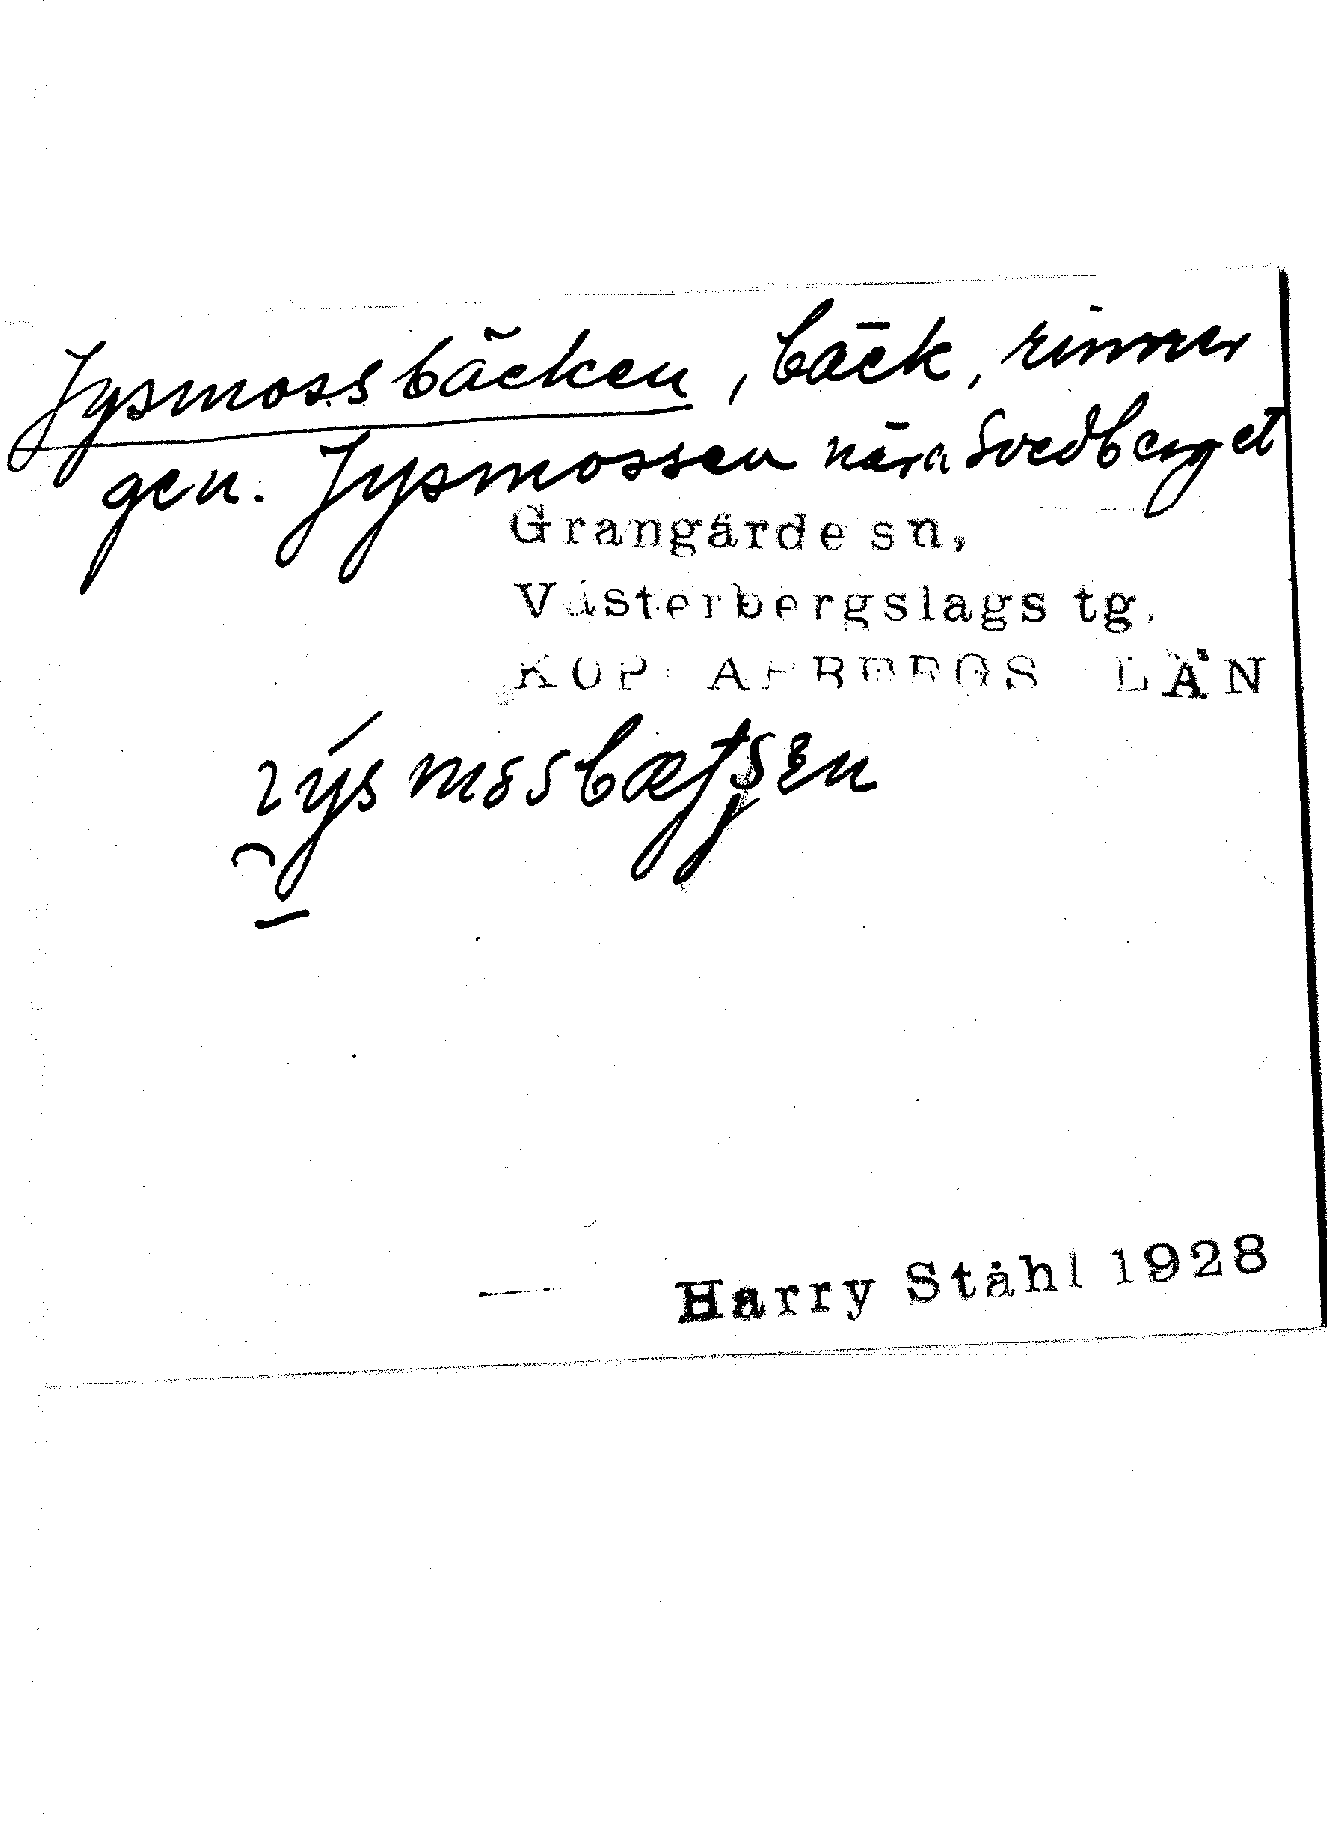 Jysmossbäcken, bäck, rinner
gen. Jysmossen nära Svedberget
Grangärde sn,
Västerbergslags tg.
KOPPARBERGS LÄN
Harry Ståhl 1928